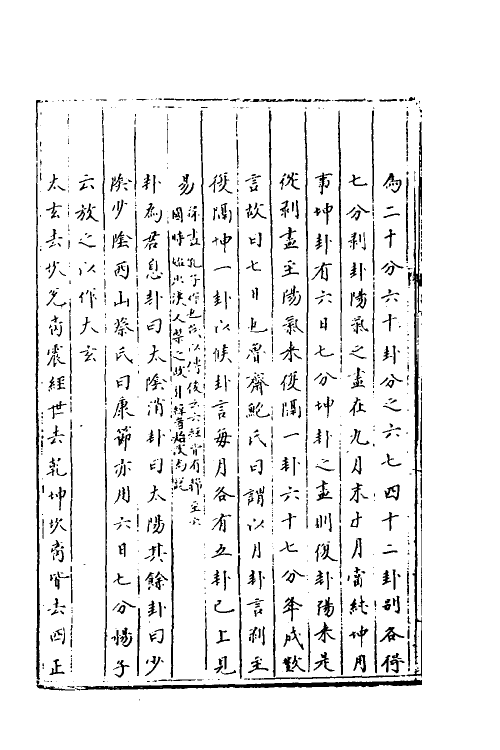 為二十分六十卦分之六七四十二卦别各得
七分剥卦陽氣之盡在九月末十月當純坤用
事坤卦有六日七分坤卦之盡則復卦陽來是
從剥盡至陽氣來復隔一卦六十七分舉成數
言故曰七日也魯齋鮑氏曰謂以月卦言剥至
復隔坤一卦以候卦言每月各有五卦已上見
易
卦為君息卦曰太陰消卦曰太陽其餘卦曰少
陰少陰西山蔡氏曰康節亦用六日七分楊子
云放之以作大玄
太玄去坎允离震經世去乾坤坎离皆去四正